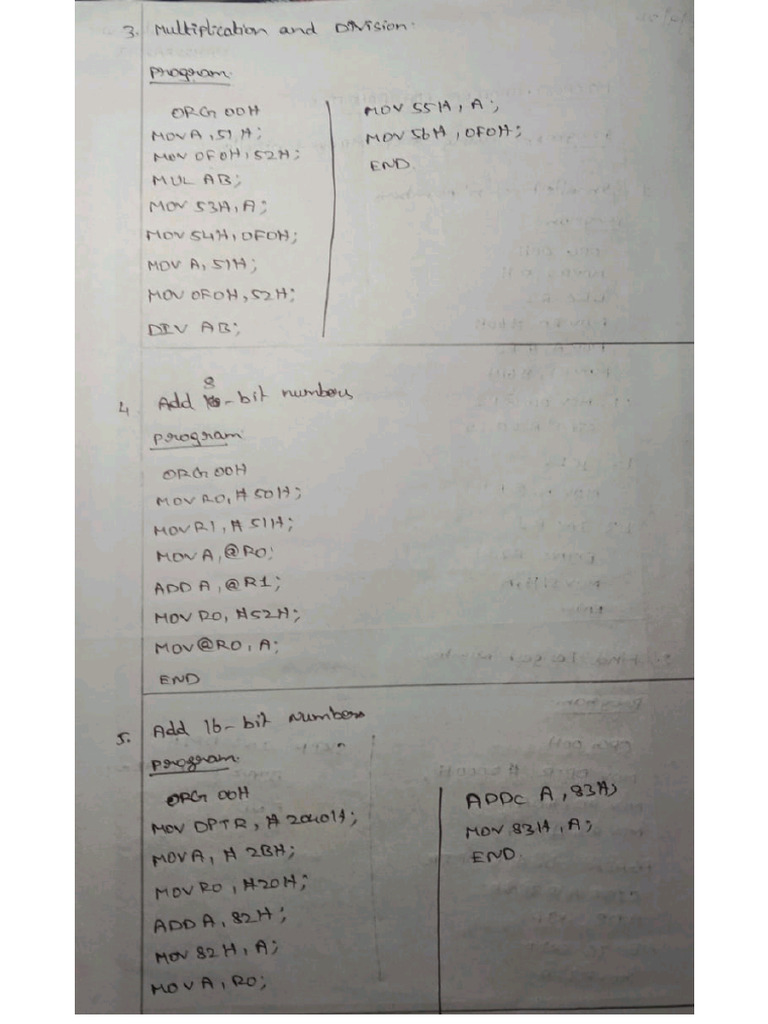 3. Multiplication and Division.
Program:
ORG 00H
MOV A, 51H;
MOV 0F0H, 52H;
MUL AB;
MOV 53H, A;
MOV 54H, 0F0H;
MOV A, 51H;
MOV 0F0H, 52H;
DIV AB;
MOV 55H, A;
MOV 56H, 0F0H;
END.
4. Add 8-bit numbers
Program:
ORG 00H
MOV R0, #50H;
MOV R1, #51H;
MOV A, @R0;
ADD A, @R1;
MOV R0, #52H;
MOV @R0, A;
END
5. Add 16-bit numbers
Program:
ORG 00H
MOV DPTR, #2040H;
MOV A, #2BH;
MOV R0, #20H;
ADD A, 82H;
MOV 82H, A;
MOV A, R0;
ADDC A, 83H;
MOV 83H, A;
END.